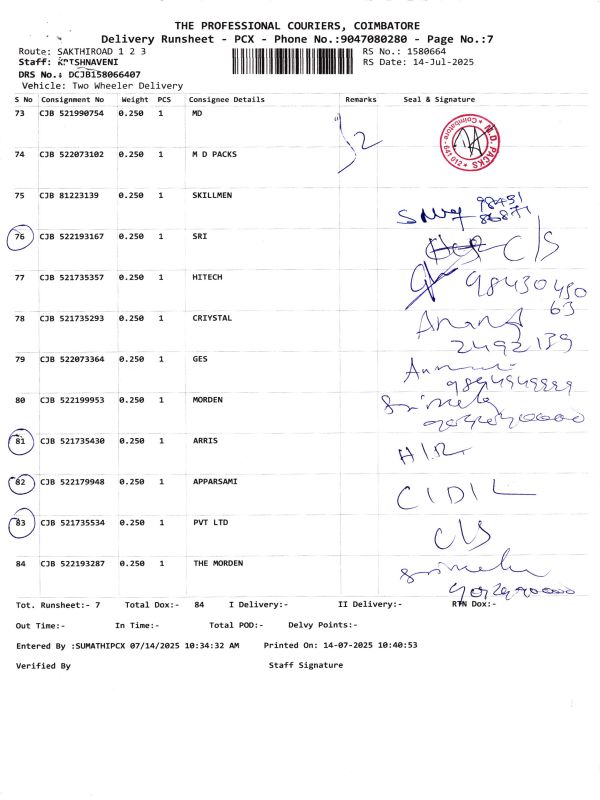 THE PROFESSIONAL COURIERS, COIMBATORE
Delivery Runsheet - PCX - Phone No.:9047080280 - Page No.:7
Route: SAKTHIROAD 1 2 3 RS No.: 1580664
Staff: KRISHNAVENI RS Date: 14-Jul-2025
DRS No.: DCJB158066407
Vehicle: Two Wheeler Delivery
S No Consignment No Weight PCS Consignee Details Remarks Seal & Signature
73 CJB 521990754 0.250 1 MD
M.D. PACKS Coimbatore - 641 012
74 CJB 522073102 0.250 1 M D PACKS
75 CJB 81223139 0.250 1 SKILLMEN
76 CJB 522193167 0.250 1 SRI C/S
77 CJB 521735357 0.250 1 HITECH 98430430
63
78 CJB 521735293 0.250 1 CRIYSTAL Anand
2492139
79 CJB 522073364 0.250 1 GES
80 CJB 522199953 0.250 1 MORDEN
81 CJB 521735430 0.250 1 ARRIS
82 CJB 522179948 0.250 1 APPARSAMI
83 CJB 521735534 0.250 1 PVT LTD C/S
84 CJB 522193287 0.250 1 THE MORDEN
Tot. Runsheet:- 7 Total Dox:- 84 I Delivery:- II Delivery:- RTN Dox:-
Out Time:- In Time:- Total POD:- Delvy Points:-
Entered By :SUMATHIPCX 07/14/2025 10:34:32 AM Printed On: 14-07-2025 10:40:53
Verified By Staff Signature